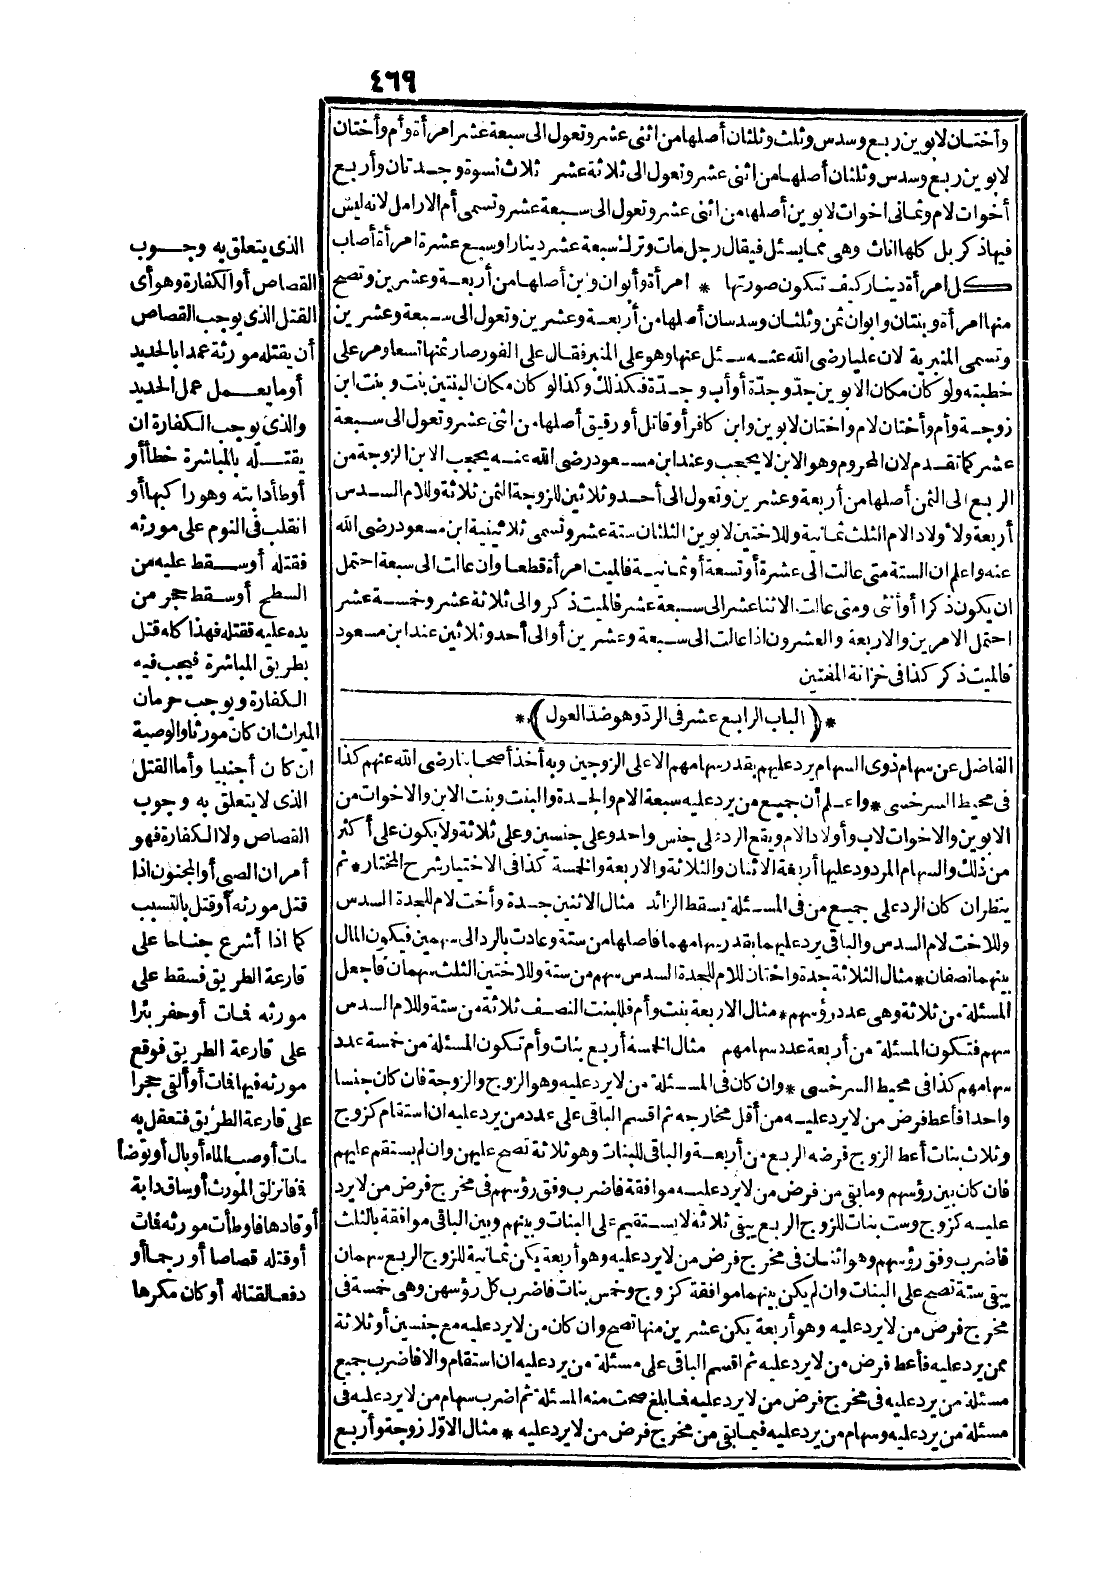 ٤٦٩
وأختان لابوين ربع وسدس وثلث وثلثان أصلها من اثنى عشر وتعول الى سبعة عشر امرأة وأم وأختان
لابوين ربع وسدس وثلثان أصلها من اثنى عشر وتعول الى ثلاثة عشر ثلاث نسوة وجدتان وأربع
أخوات لام وثمانى اخوات لابوين أصلها من اثنى عشر وتعول الى سبعة عشر وتسمى أم الارامل لانه ليس
فيها ذكر بل كلها اناث وهى مما يسئل فيقال رجل مات وترك سبعة عشر دينارا وسبع عشرة امرأة أصاب
كل امرأة دينار كيف تكون صورتها * امرأة وأبوان وابن أصلها من أربعة وعشرين وتصح
منها امرأة وبنتان وابوان ثمن وثلثان وسدسان أصلها من أربعة وعشرين وتعول الى سبعة وعشرين
وتسمى المنبرية لان عليا رضى الله عنه سئل عنها وهو على المنبر فقال على الفور صار ثمنها تسعا ومر على
خطبته ولو كان مكان الابوين جد وجدة أو أب وجدة فكذلك وكذا لو كان مكان البنتين بنت وبنت ابن
زوجة وأم وأختان لام واختان لابوين وابن كافر أو قاتل أو رقيق أصلها من اثنى عشر وتعول الى سبعة
عشر كما تقدم لان المحروم وهو الابن لا يحجب وعند ابن مسعود رضى الله عنه يحجب الابن الزوجة من
الربع الى الثمن أصلها من أربعة وعشرين وتعول الى أحد وثلاثين للزوجة الثمن ثلاثة وللام السدس
أربعة ولاولاد الام الثلث ثمانية وللاختين لابوين الثلثان ستة عشر وتسمى ثلاثينية ابن مسعود رضى الله
عنه واعلم ان الستة متى عالت الى عشرة أو تسعة أو ثمانية فالميت امرأة قطعا وان عالت الى سبعة احتمل
ان يكون ذكرا أو أنثى ومتى عالت الاثنا عشر الى سبعة عشر فالميت ذكر والى ثلاثة عشر وخمسة عشر
احتمل الامرين والاربعة والعشرون اذا عالت الى سبعة وعشرين أو الى أحد وثلاثين عند ابن مسعود
فالميت ذكر كذا فى خزانة المفتين
* ( الباب الرابع عشر فى الرد وهو ضد العول ) *
الفاضل عن سهام ذوى السهام يرد عليهم بقدر سهامهم الا على الزوجين وبه أخذ أصحابنا رضى الله عنهم كذا
فى محيط السرخسى * واعلم أن جميع من يرد عليه سبعة الام والجدة والبنت وبنت الابن والاخوات من
الابوين والاخوات لاب وأولاد الام ويقع الرد على جنس واحد وعلى جنسين وعلى ثلاثة ولا يكون على أكثر
من ذلك والسهام المردود عليها أربعة الاثنان والثلاثة والاربعة والخمسة كذا فى الاختيار شرح المختار * ثم
ينظر ان كان الرد على جميع من فى المسئلة يسقط الزائد مثال الاثنين جدة وأخت لام للجدة السدس
وللاخت لام السدس والباقى يرد عليهما بقدر سهامهما فاصلها من ستة وعادت بالرد الى سهمين فيكون المال
بينهما نصفان * مثال الثلاثة جدة واختان للام للجدة السدس سهم من ستة وللاختين الثلث سهمان فاجعل
المسئلة من ثلاثة وهى عدد رؤسهم * مثال الاربعة بنت وأم فللبنت النصف ثلاثة من ستة وللام السدس
سهم فتكون المسئلة من أربعة عدد سهامهم مثال الخمسة أربع بنات وأم تكون المسئلة من خمسة عدد
سهامهم كذا فى محيط السرخسى * وان كان فى المسئلة من لا يرد عليه وهو الزوج والزوجة فان كان جنسا
واحدا فأعط فرض من لا يرد عليه من أقل مخارجه ثم اقسم الباقى على عدد من يرد عليه ان استقام كزوج
وثلاث بنات أعط الزوج فرضه الربع من أربعة والباقى للبنات وهو ثلاثة تصح عليهن وان لم يستقم عليهم
فان كان بين رؤسهم وما بقى من فرض من لا يرد عليه موافقة فاضرب وفق رؤسهم فى مخرج فرض من لا يرد
عليه كزوج وست بنات للزوج الربع يبقى ثلاثة لا يستقيم على البنات وبينهم وبين الباقى موافقة بالثلث
فاضرب وفق رؤسهم وهو اثنان فى مخرج فرض من لا يرد عليه وهو أربعة يكن ثمانية للزوج الربع سهمان
يبقى ستة تصح على البنات وان لم يكن بينهما موافقة كزوج وخمس بنات فاضرب كل رؤسهن وهى خمسة فى
مخرج فرض من لا يرد عليه وهو أربعة يكن عشرين منها تصح وان كان من لا يرد عليه مع جنسين أو ثلاثة
ممن يرد عليه فأعط فرض من لا يرد عليه ثم اقسم الباقى على مسئلة من يرد عليه ان استقام والا فاضرب جميع
مسئلة من يرد عليه فى مخرج فرض من لا يرد عليه فما بلغ صحت منه المسئلة ثم اضرب سهام من لا يرد عليه فى
مسئلة من يرد عليه وسهام من يرد عليه فيما بقى من مخرج فرض من لا يرد عليه * مثال الاول زوجة وأربع
الذى يتعلق به وجوب
القصاص أو الكفارة وهو أى
القتل الذى يوجب القصاص
أن يقتله مورثه عمدا بالحديد
أو ما يعمل عمل الحديد
والذى يوجب الكفارة ان
يقتله بالمباشرة خطأ أو
أوطأ دابته وهو راكبها أو
انقلب فى النوم على مورثه
فقتله أو سقط عليه من
السطح أو سقط حجر من
يده عليه فقتله فهذا كله قتل
بطريق المباشرة فيجب فيه
الكفارة ويوجب حرمان
الميراث ان كان مورثا والوصية
ان كان أجنبيا وأما القتل
الذى لا يتعلق به وجوب
القصاص ولا الكفارة فهو
أمران الصبى أو المجنون اذا
قتل مورثه أو قتل بالتسبب
كما اذا أشرع جناحا على
قارعة الطريق فسقط على
مورثه فمات أو حفر بئرا
على قارعة الطريق فوقع
مورثه فيها فمات أو ألقى حجرا
على قارعة الطريق فتعقل به
ومات أو صب الماء أو بال أو توضأ
فانزلق المورث أو ساق دابة
أو قادها فاوطأت مورثه فمات
أو قتله قصاصا أو رجما أو
دفعا لقتاله أو كان مكرها